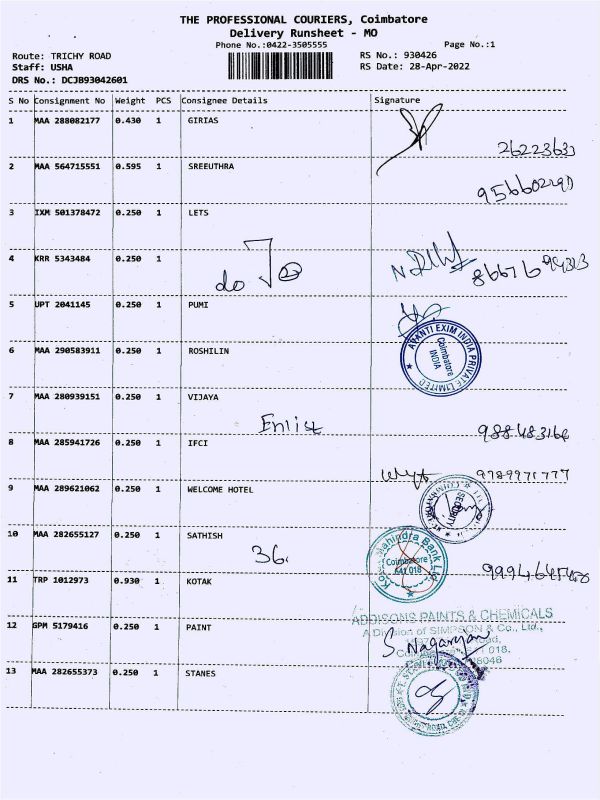 THE PROFESSIONAL COURIERS, Coimbatore
Delivery Runsheet - MO
Phone No.:0422-3505555
Page No.:1
Route: TRICHY ROAD
RS No.: 930426
Staff: USHA
RS Date: 28-Apr-2022
DRS No.: DCJB93042601
S No Consignment No Weight PCS Consignee Details Signature
1 MAA 288082177 0.430 1 GIRIAS
2 MAA 564715551 0.595 1 SREEUTHRA
3 IXM 501378472 0.250 1 LETS
4 KRR 5343484 0.250 1 do
5 UPT 2041145 0.250 1 PUMI
AVANTI EXIM INDIA PRIVATE LIMITED
Coimbatore
INDIA
6 MAA 290583911 0.250 1 ROSHILIN
7 MAA 280939151 0.250 1 VIJAYA
8 MAA 285941726 0.250 1 IFCI
9789971777
9 MAA 289621062 0.250 1 WELCOME HOTEL
SECURITY
10 MAA 282655127 0.250 1 SATHISH
36.
Mahindra Bank Ltd
Coimbatore
641 018
11 TRP 1012973 0.930 1 KOTAK
ADDISONS PAINTS & CHEMICALS
A Division of SIMPSON & Co., Ltd.,
12 GPM 5179416 0.250 1 PAINT
13 MAA 282655373 0.250 1 STANES